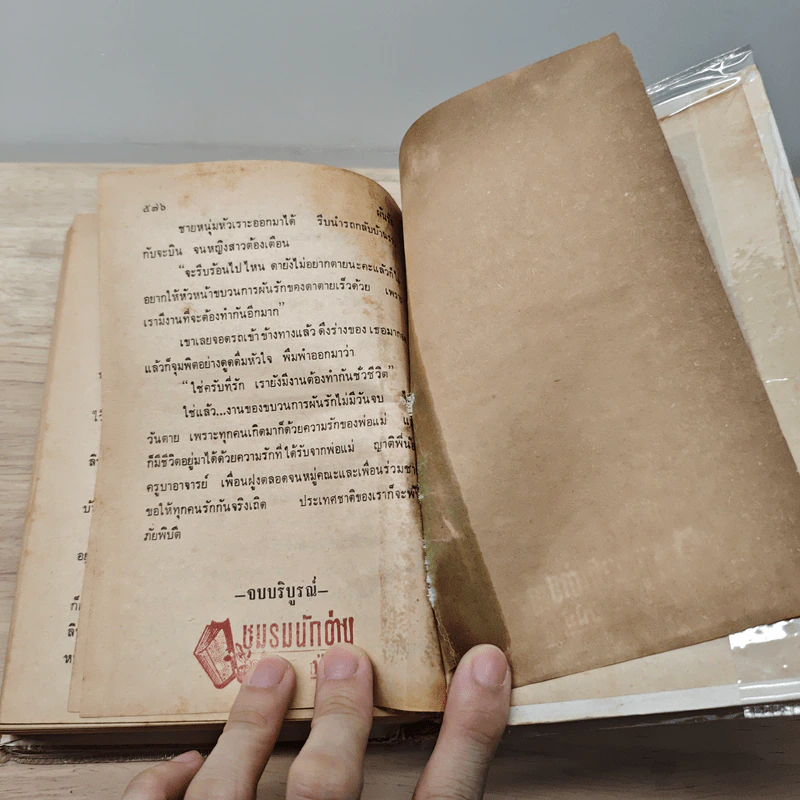 ๕๗๖
ชายหนุ่มหัวเราะออกมาได้ รีบนำรถกลับบ้าน
กับจะบิน จนหญิงสาวต้องเตือน
“จะรีบร้อนไปไหน ดายังไม่อยากตายนะคะแล้วก็
อยากให้หัวหน้าขบวนการผันรักของดาตายเร็วด้วย
เรามีงานที่จะต้องทำกันอีกมาก”
เขาเลยจอดรถเข้าข้างทางแล้ว ดึงร่างของ เธอมา
แล้วก็จุมพิตอย่างดูดดื่มหัวใจ พึมพำออกมาว่า
“ใช่ครับที่รัก เรายังมีงานต้องทำกันชั่วชีวิต”
ใช่แล้ว...งานของขบวนการผันรักไม่มีวันจบ
วันตาย เพราะทุกคนเกิดมาก็ด้วยความรักของพ่อแม่
ก็มีชีวิตอยู่มาได้ด้วยความรักที่ได้รับจากพ่อแม่ ญาติพี่น้
ครูบาอาจารย์ เพื่อนฝูงตลอดจนหมู่คณะและเพื่อนร่วมชา
ขอให้ทุกคนรักกันจริงเถิด ประเทศชาติของเราก็จะ
ภัยพิบัติ
—จบบริบูรณ์—
ชมรมนักอ่าน